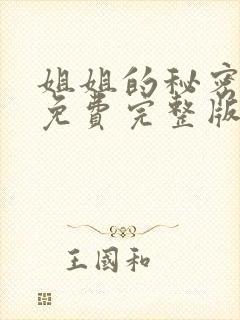 姐姐的秘密
免费完整版
王國和